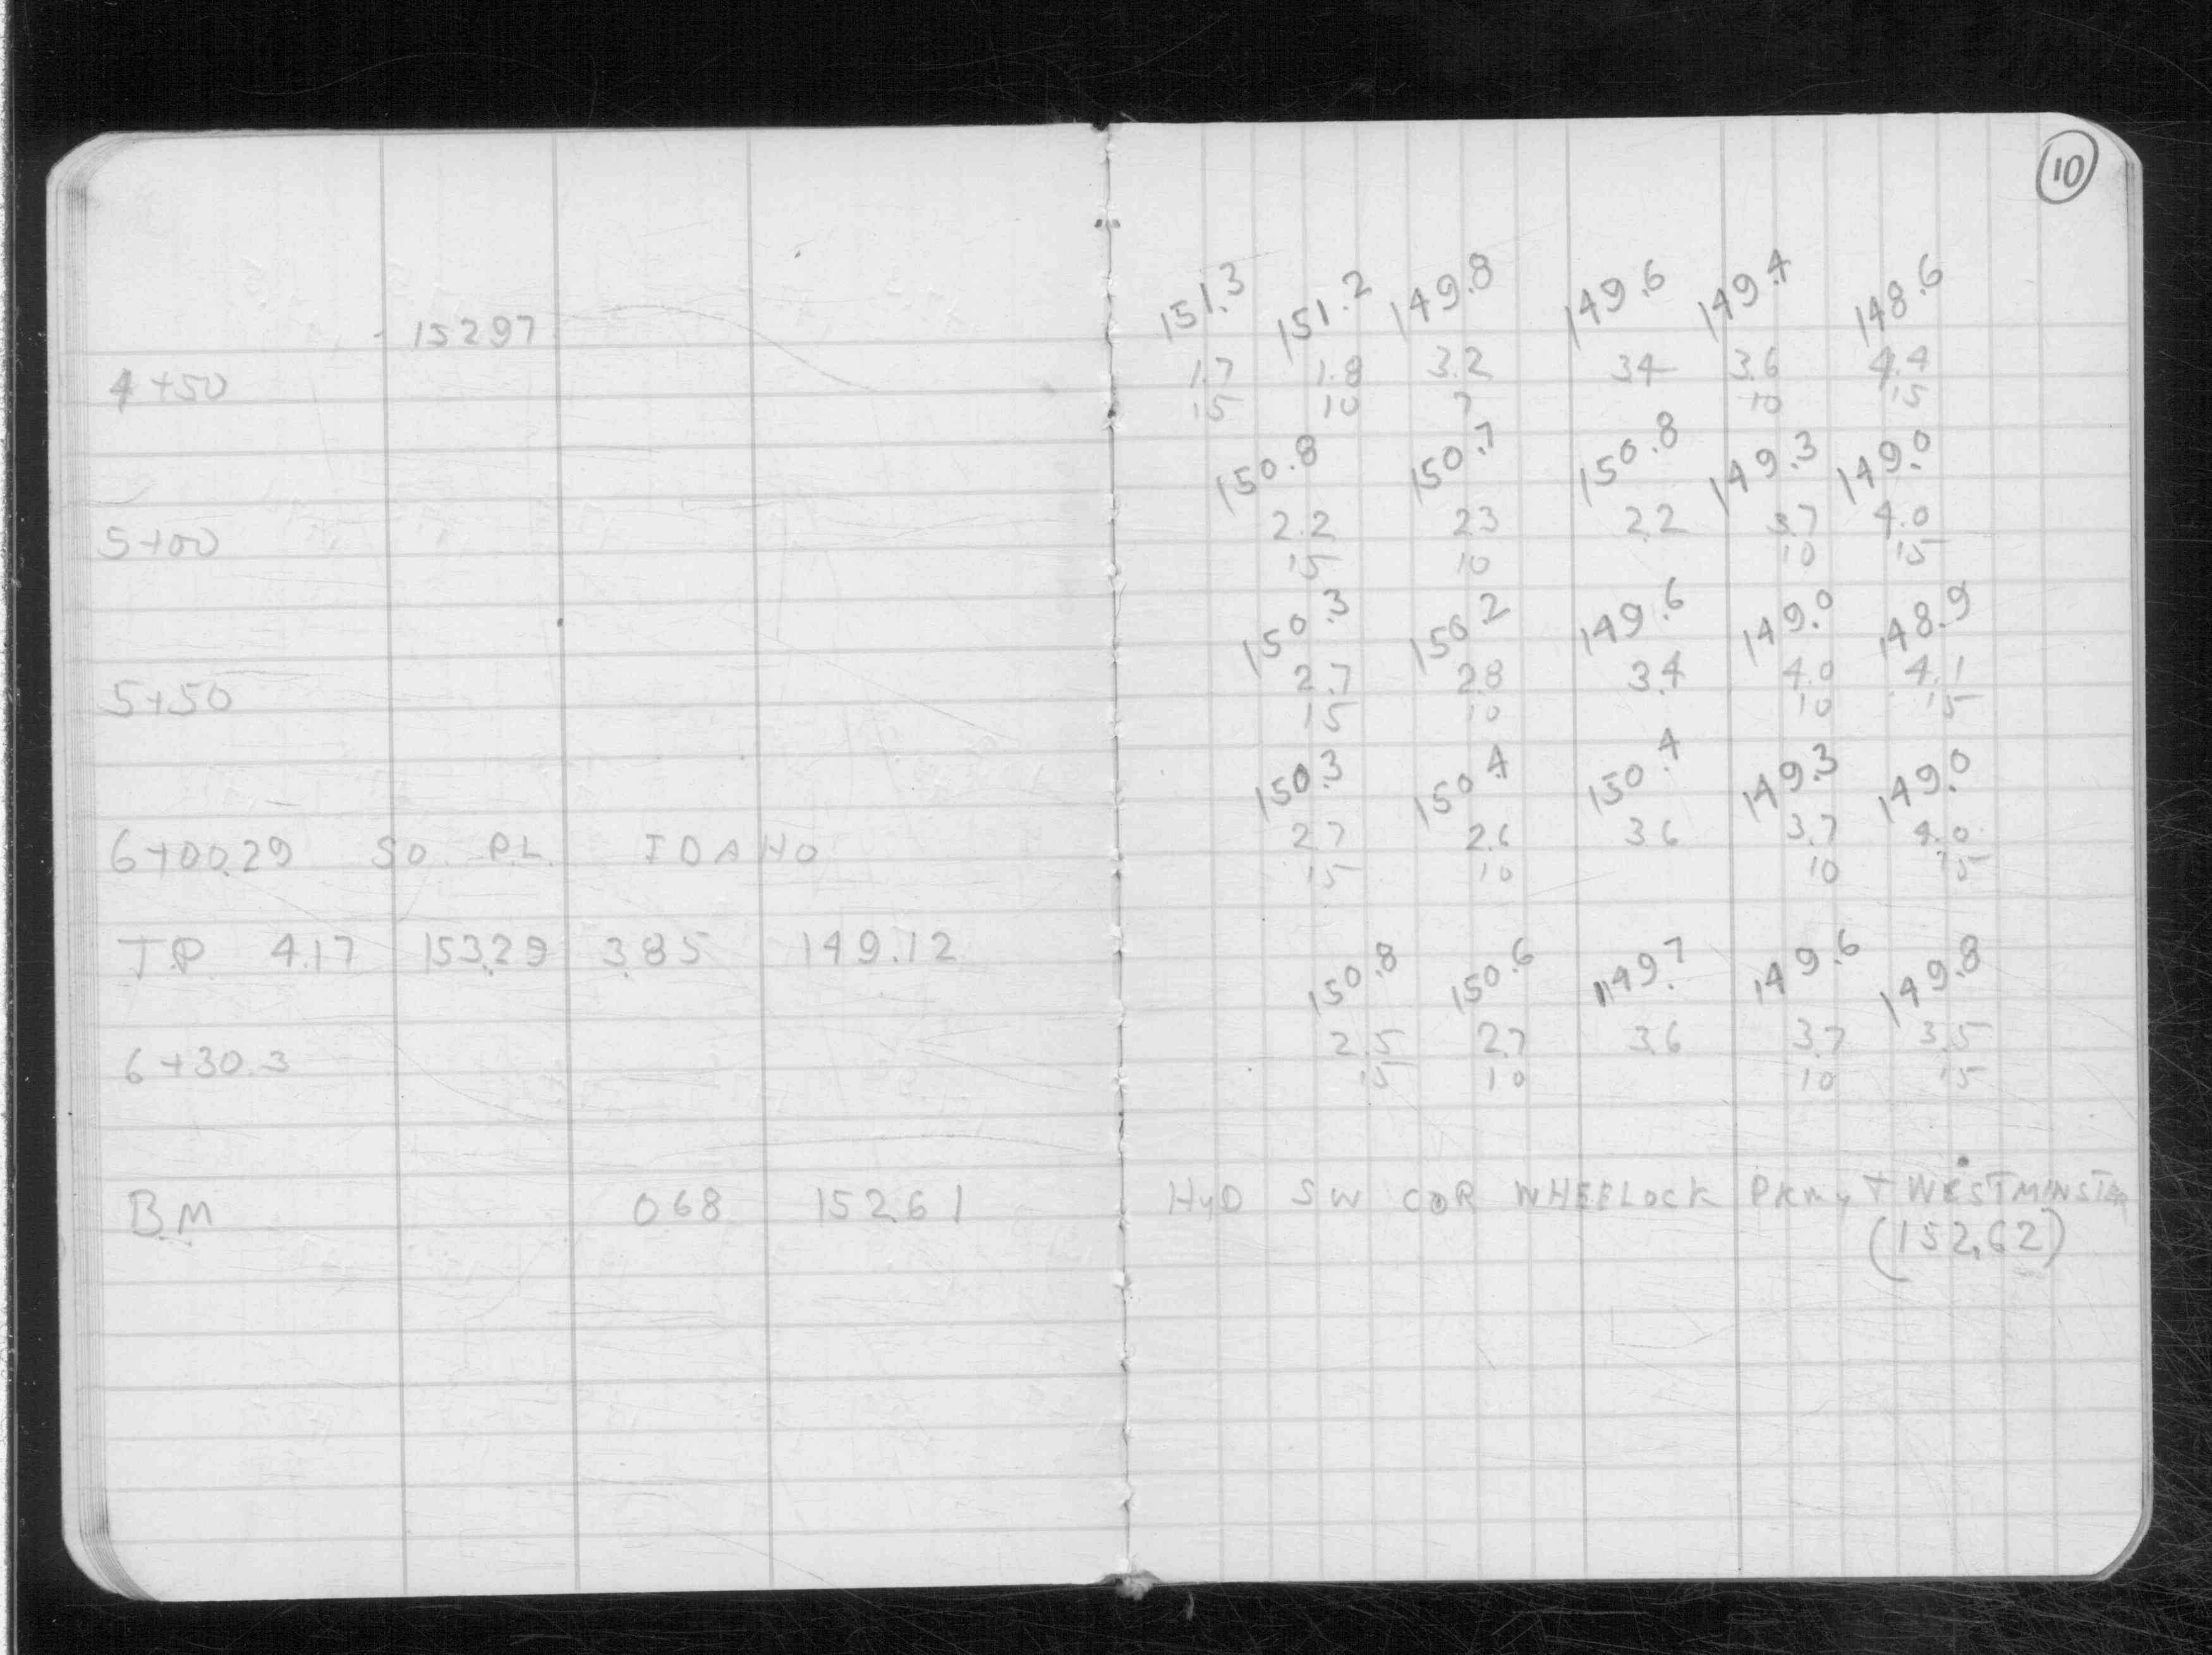 10
151.3 151.2 149.8 149.6 149.4 148.6
15297
4+50 1.7 1.8 3.2 34 3.6 4.4
15 10 7 10 15
150.8 150.7 150.8 149.3 149.0
5+00 2.2 23 2.2 3.7 4.0
15 10 10 15
150.3 150.2 149.6 149.0 148.9
5+50 2.7 28 3.4 4.0 4.1
15 10 10 15
150.3 150.4 150.4 149.3 149.0
6+00.29 SO. P.L. IDAHO 2.7 2.6 36 3.7 4.0
15 10 10 15
T.P. 4.17 153.29 3.85 149.12
150.8 150.6 149.7 149.6 149.8
6+30.3 2.5 2.7 3.6 3.7 3.5
15 10 10 15
B.M 068 152.61 HyD SW COR WHEELOCK PKwy + WESTMINSTER
(152.62)